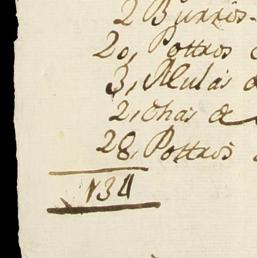 2 Burros
20, Pottros
3, Mulas d
2, chas de
28, Pottros
134